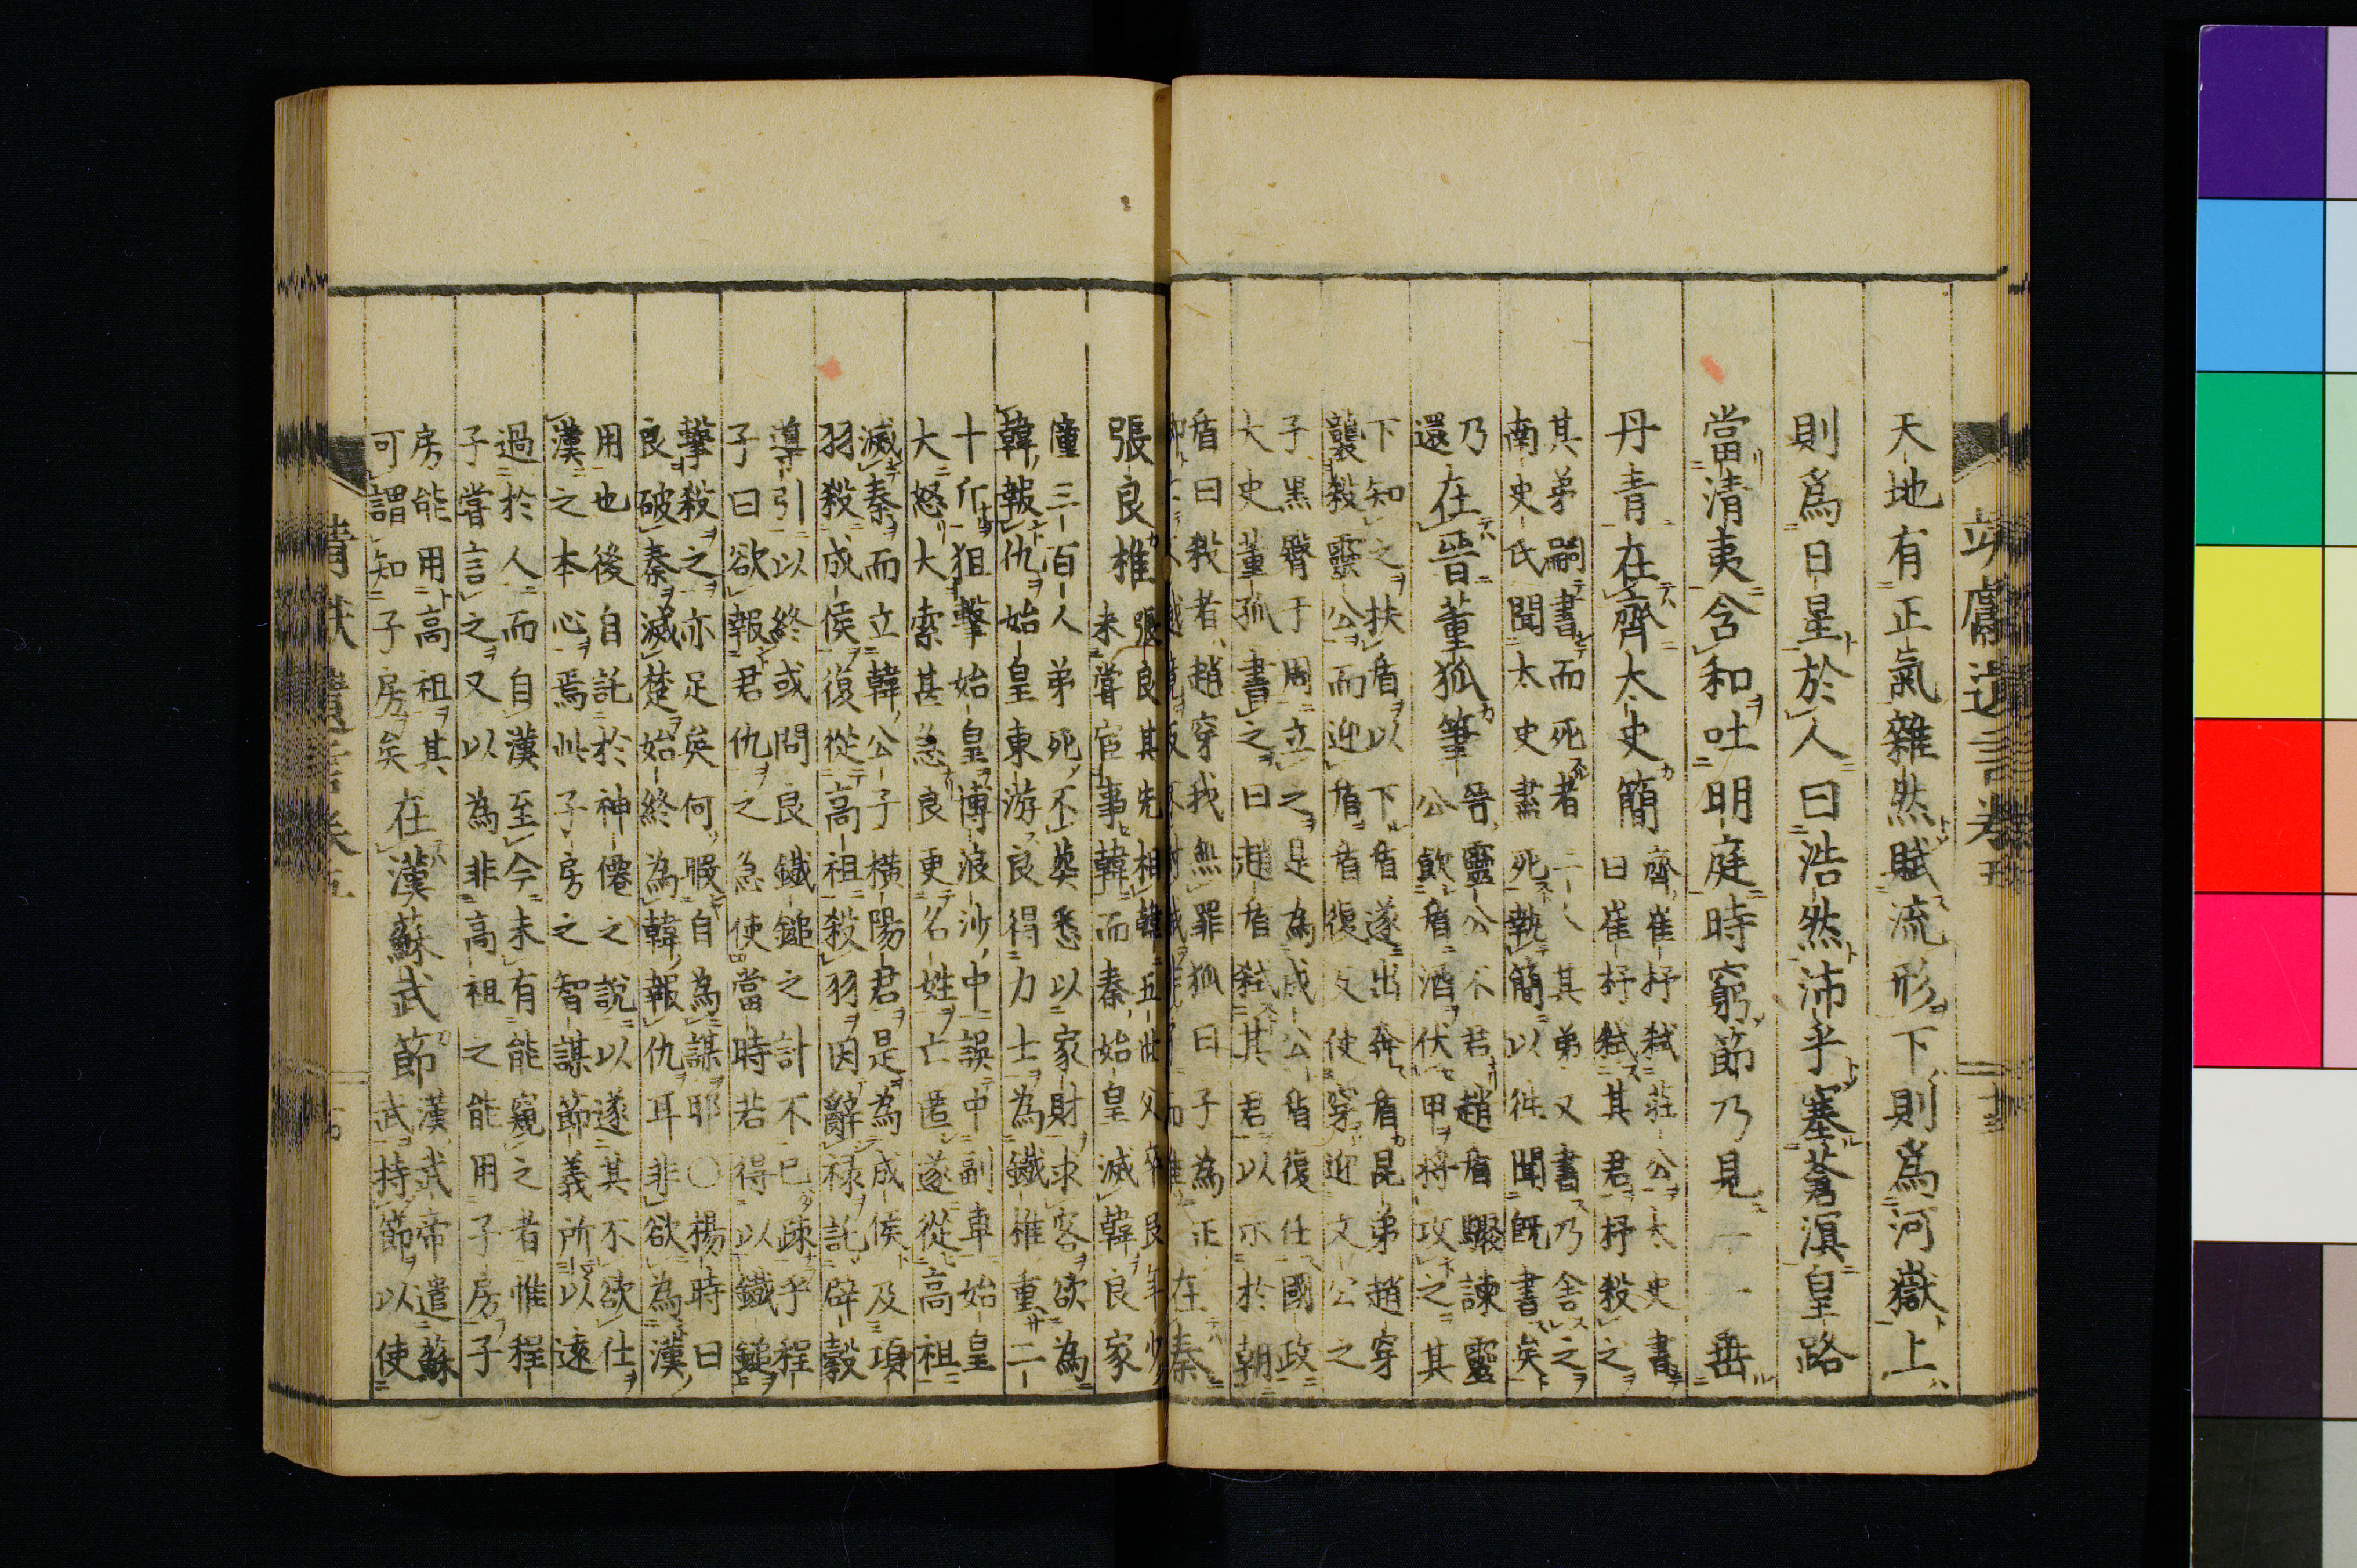 天地有正氣雜然賦流形下則爲河嶽上
則爲日星於人曰浩然沛乎塞蒼溟皇路
當清夷含和吐明庭時窮節乃見一一垂
丹青在齊太史簡
齊崔杼弑莊公太史書
曰崔杼弑其君杼殺之
其弟嗣書而死者二人其弟又書乃舍之
南史氏聞太史盡死執簡以徃聞既書矣
乃
還
在晉董狐筆
晉靈公不君趙盾驟諫靈
公飲盾酒伏甲將攻之其
下知之扶盾以下盾遂出奔盾昆弟趙穿
襲殺靈公而迎盾盾復反使穿迎文公之
子黑臀于周立之是為成公盾復任國政
大史董狐書之曰趙盾弑其君以示於朝
盾曰殺者趙穿我無罪狐曰子為正
在秦
張良椎
張良其先相韓五世父卒良年少
未嘗宦事韓而秦始皇滅韓良家
僮三百人弟死不葬悉以家財求客欲為
韓報仇始皇東游良得力士為鐵椎重二
十斤狙擊始皇博浪沙中誤中副車始皇
大怒大索甚急良更名姓亡匿遂從高祖
滅秦而立韓公子橫陽君是為成侯及項
羽殺成侯復從高祖殺羽因辭祿託辟穀
導引以終或問良鐵鎚之計不已疎乎程
子曰欲報君仇之急使當時若得以鐵鎚
擊殺之亦足矣何暇自為謀耶○楊時曰
良破秦滅楚始終為韓報仇耳非欲為漢
用也後自託於神僊之說以遂其不欲仕
漢之本心焉此子房之智謀節義所以遠
過於人而自漢至今未有能窺之者惟程
子嘗言之又以為非高祖之能用子房子
房能用高祖其
可謂知子房矣
在漢蘇武節
漢武帝遣蘇
武持節以使